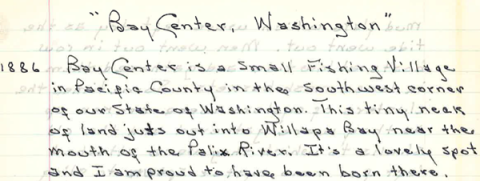 "Bay Center, Washington"
1886 Bay Center is a small Fishing Village
in Pacific County in the southwest corner
of our State of Washington. This tiny neck
of land juts out into Willapa Bay near the
mouth of the Palix River. It's a lovely spot
and I am proud to have been born there.